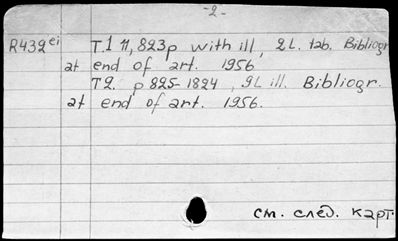 -2-
R439ei T.1 11,823p with ill, 2L. tab. Bibliogr
at end of art. 1956
T2. p 825-1824, 9L ill. Bibliogr.
at end of art. 1956.
см. след. карт